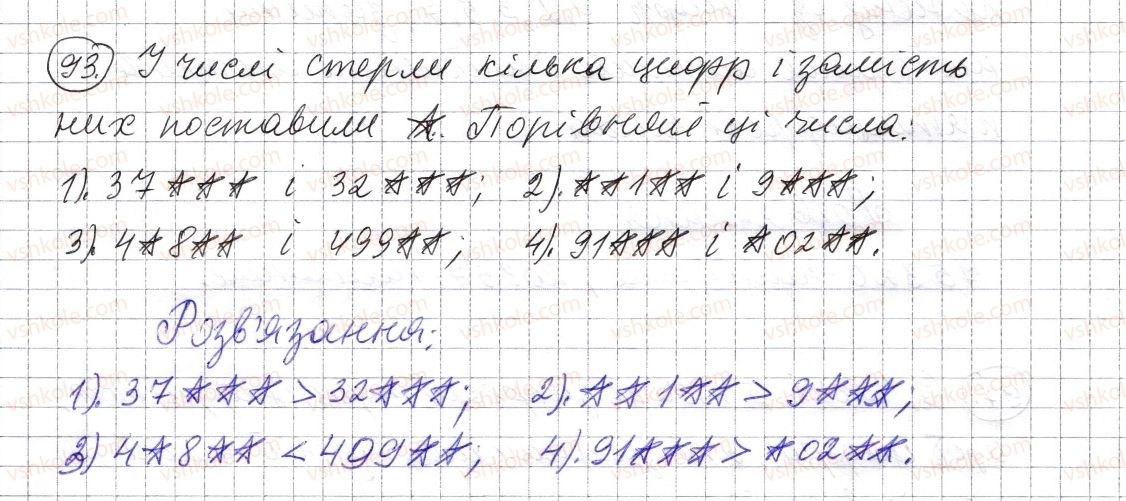 93. У числі стерли кілька цифр і замість
них поставили *. Порівняй ці числа:
1). 37*** і 32***; 2). **1** і 9***;
3). 4*8** і 499**; 4). 91*** і *02**.
Розв'язання:
1). 37*** > 32***; 2). **1** > 9***;
3) 4*8** < 499**; 4). 91*** > *02**.